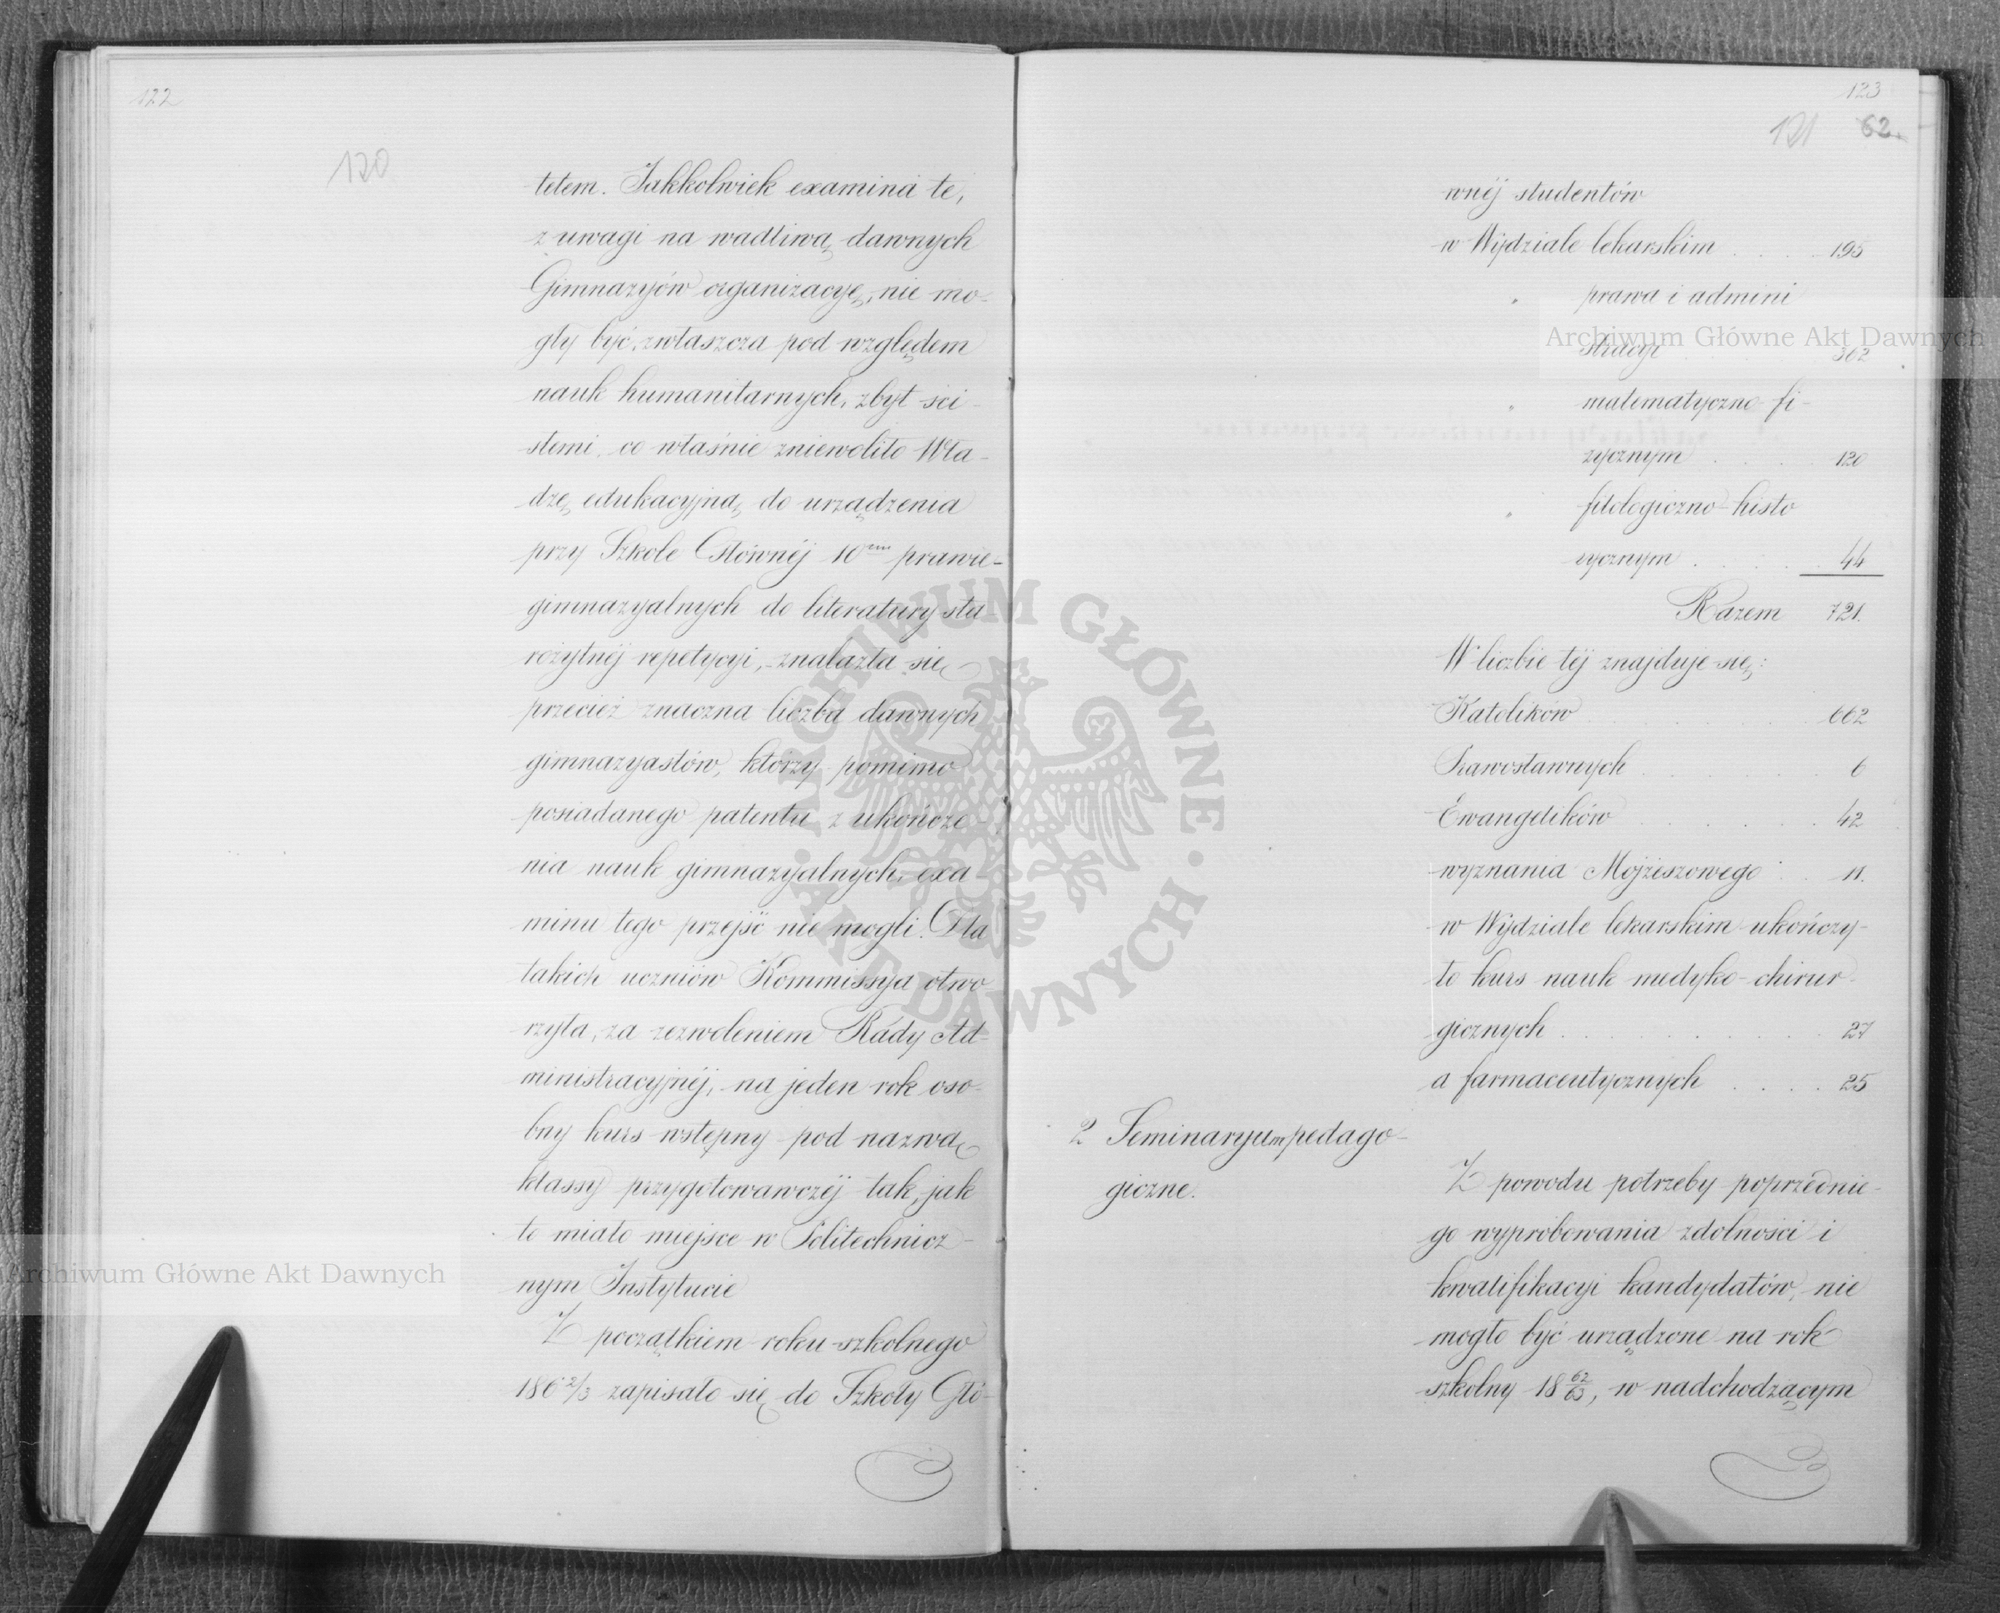 122
120
tetem. Jakkolwiek examina te,
z uwagi na wadliwą dawnych
Gimnazyów organizacyę, nie mo-
gły być, zwłaszcza pod względem
nauk humanitarnych, zbyt ści-
słemi, co właśnie zniewoliło Wła-
dzę edukacyjną do urządzenia
przy Szkole Głównéj 10ciu prawie
gimnazyalnych do literatury sta
rożytnéj repetycyi, znalazła się
przecież znaczna liczba dawnych
gimnazyastów, którzy pomimo
posiadanego patentu z ukończe-
nia nauk gimnazyalnych, exa-
minu tego przejść nie mogli. Dla
takich uczniów Kommissya otwo-
rzyła, za zezwoleniem Rady Ad-
ministracyjnéj, na jeden rok oso-
bny kurs wstępny pod nazwą
klassy przygotowawczéj tak, jak
to miało miejsce w Politechnicz-
nym Instytucie
Z początkiem roku szkolnego
186 2/3 zapisało się do Szkoły Głó-
123
121 62.
wnéj studentów
w Wydziale lekarskim . . . . 195
" prawa i admini
stracyi 362
" matematyczno fi-
zycznym . . . . 120
" filologiczno-histo
rycznym . . . . . 44
Razem 721.
W liczbie téj znajduje się:
Katolików . . . . 662
Prawosławnych . . . . . . . 6
Ewangelików . . . . . 42
wyznania Mojżeszowego . . . 11.
w Wydziale lekarskim ukończy-
ło kurs nauk medyko-chirur-
gicznych . . . . . . . . . . 27
a farmaceutycznych . . . . 25
2 Seminaryum pedago-
giczne.
Z powodu potrzeby poprzednie-
go wypróbowania zdolności i
kwalifikacyi kandydatów, nie
mogło być urządzone na rok
szkolny 18 62/63, w nadchodzącym
Archiwum Główne Akt Dawnych
Archiwum Główne Akt Dawnych
ARCHIWUM GŁÓWNE · AKT DAWNYCH ·